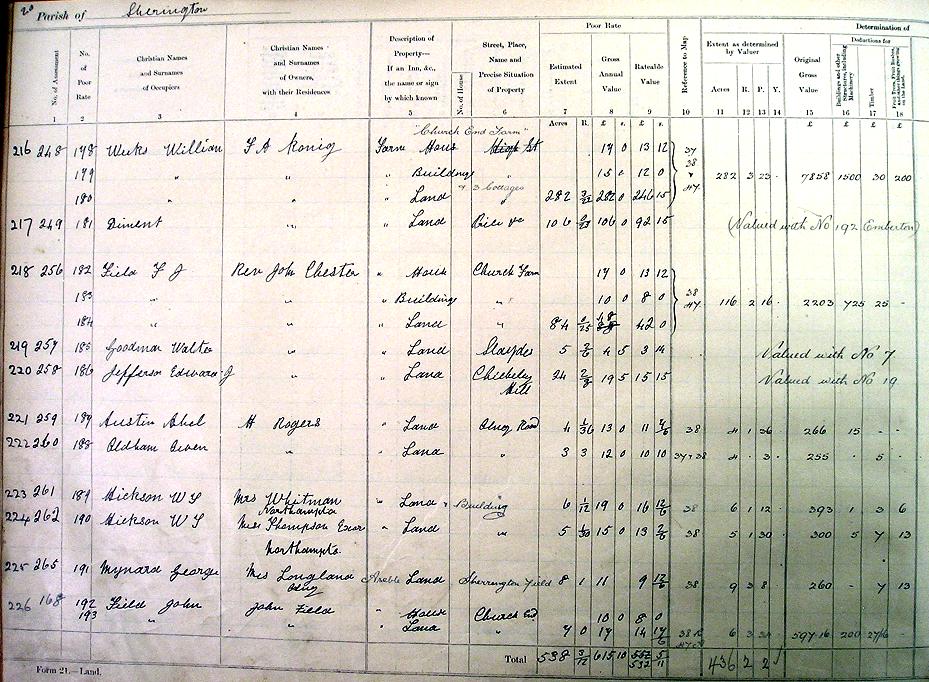 20 Parish of Sherington
Poor Rate
Determination of
No. of Assessment
No. of Poor Rate
Christian Names and Surnames of Occupiers
Christian Names and Surnames of Owners, with their Residences
Description of Property—If an Inn, &c., the name or sign by which known
No. of House
Street, Place, Name and Precise Situation of Property
Estimated Extent
Gross Annual Value
Rateable Value
Reference to Map
Extent as determined by Valuer
Acres R. P. Y.
Original Gross Value
Deductions for
Buildings and other Structures, including Machinery
Timber
Fruit Trees, Fruit Bushes, and other things growing on the Land.
1 2 3 4 5 6 7 8 9 10 11 12 13 14 15 16 17 18
Acres R. £ s. £ s. £ £ £ £
"Church End Farm"
216 248 178 Weeks William F A Konig Farm House High St 17 0 13 12 37
179 " " " Buildings 15 0 12 0 38 282 3 23 - 7858 1500 30 200
& 3 Cottages
180 " " " Land " 282 282 0 246 15 47
217 249 181 Diment " " Land 106 106 0 92 15 (Valued with No 192 (Emberton)
218 256 182 Field F J Rev John Chester " House Church Farm 17 0 13 12
183 " " " Buildings " 10 0 8 0 38 47 116 2 16 - 2203 725 25 -
184 " " " Land " 84 0/25 42 0
219 257 185 Goodman Walter " " Land Slaydes 5 4 5 3 14 Valued with No 7
220 258 186 Jefferson Edward J " " Land Chicheley Hill 24 19 5 15 15 Valued with No 19
221 259 187 Austin Abel H Rogers " Land Olney Road 4 1/36 13 0 11 38 4 1 36 266 15 -
222 260 188 Oldham Owen " " Land " 3 3 12 0 10 10 37 & 38 4 - 3 - 255 - 5 -
223 261 189 Hickson W S Mrs Whitman Northampton " Land & Building 6 1/12 19 0 16 12/6 38 6 1 12 - 393 1 3 6
224 262 190 Hickson W S Miss Thompson Exor Northampton " Land " 5 1/30 15 0 13 2/6 38 5 1 30 - 300 5 7 13
225 265 191 Mynard George Mrs Longland Olney Arable Land Sherrington Field 8 1 11 9 12/6 38 9 3 8 260 - 7 13
226 168 192 Field John John Field " House Church End 10 0 8 0
193 " " " Land " 7 0 17 14 17/6 6 3 34 - 597 16 200 27/6 -
Total 538 3/12 615 10 552 5 532 11 436 2 2
Form 21.—Land.